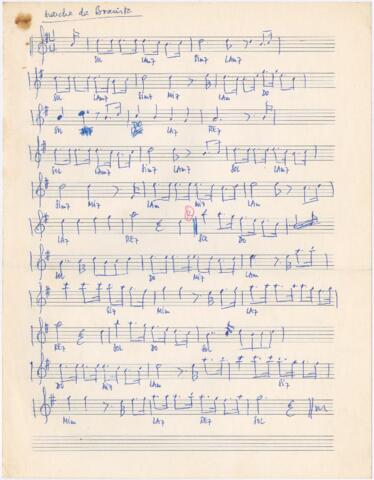 Marcha de
SOL LAm7 SIm7 LAm7
SOL LAm7 SIm7 MI7 LAm DO
SOL LA7 RE7
SOL LAm7 SIm7 LAm7 SOL LAm7
SIm7 MI7 LAm MI7 LAm
LA7 RE7 SOL DO
SOL DO MI7 LAm
SI7 MIm LA7
RE7 SOL DO SOL
DO MI7 LAm SI7
MIm LA7 RE7 SOL